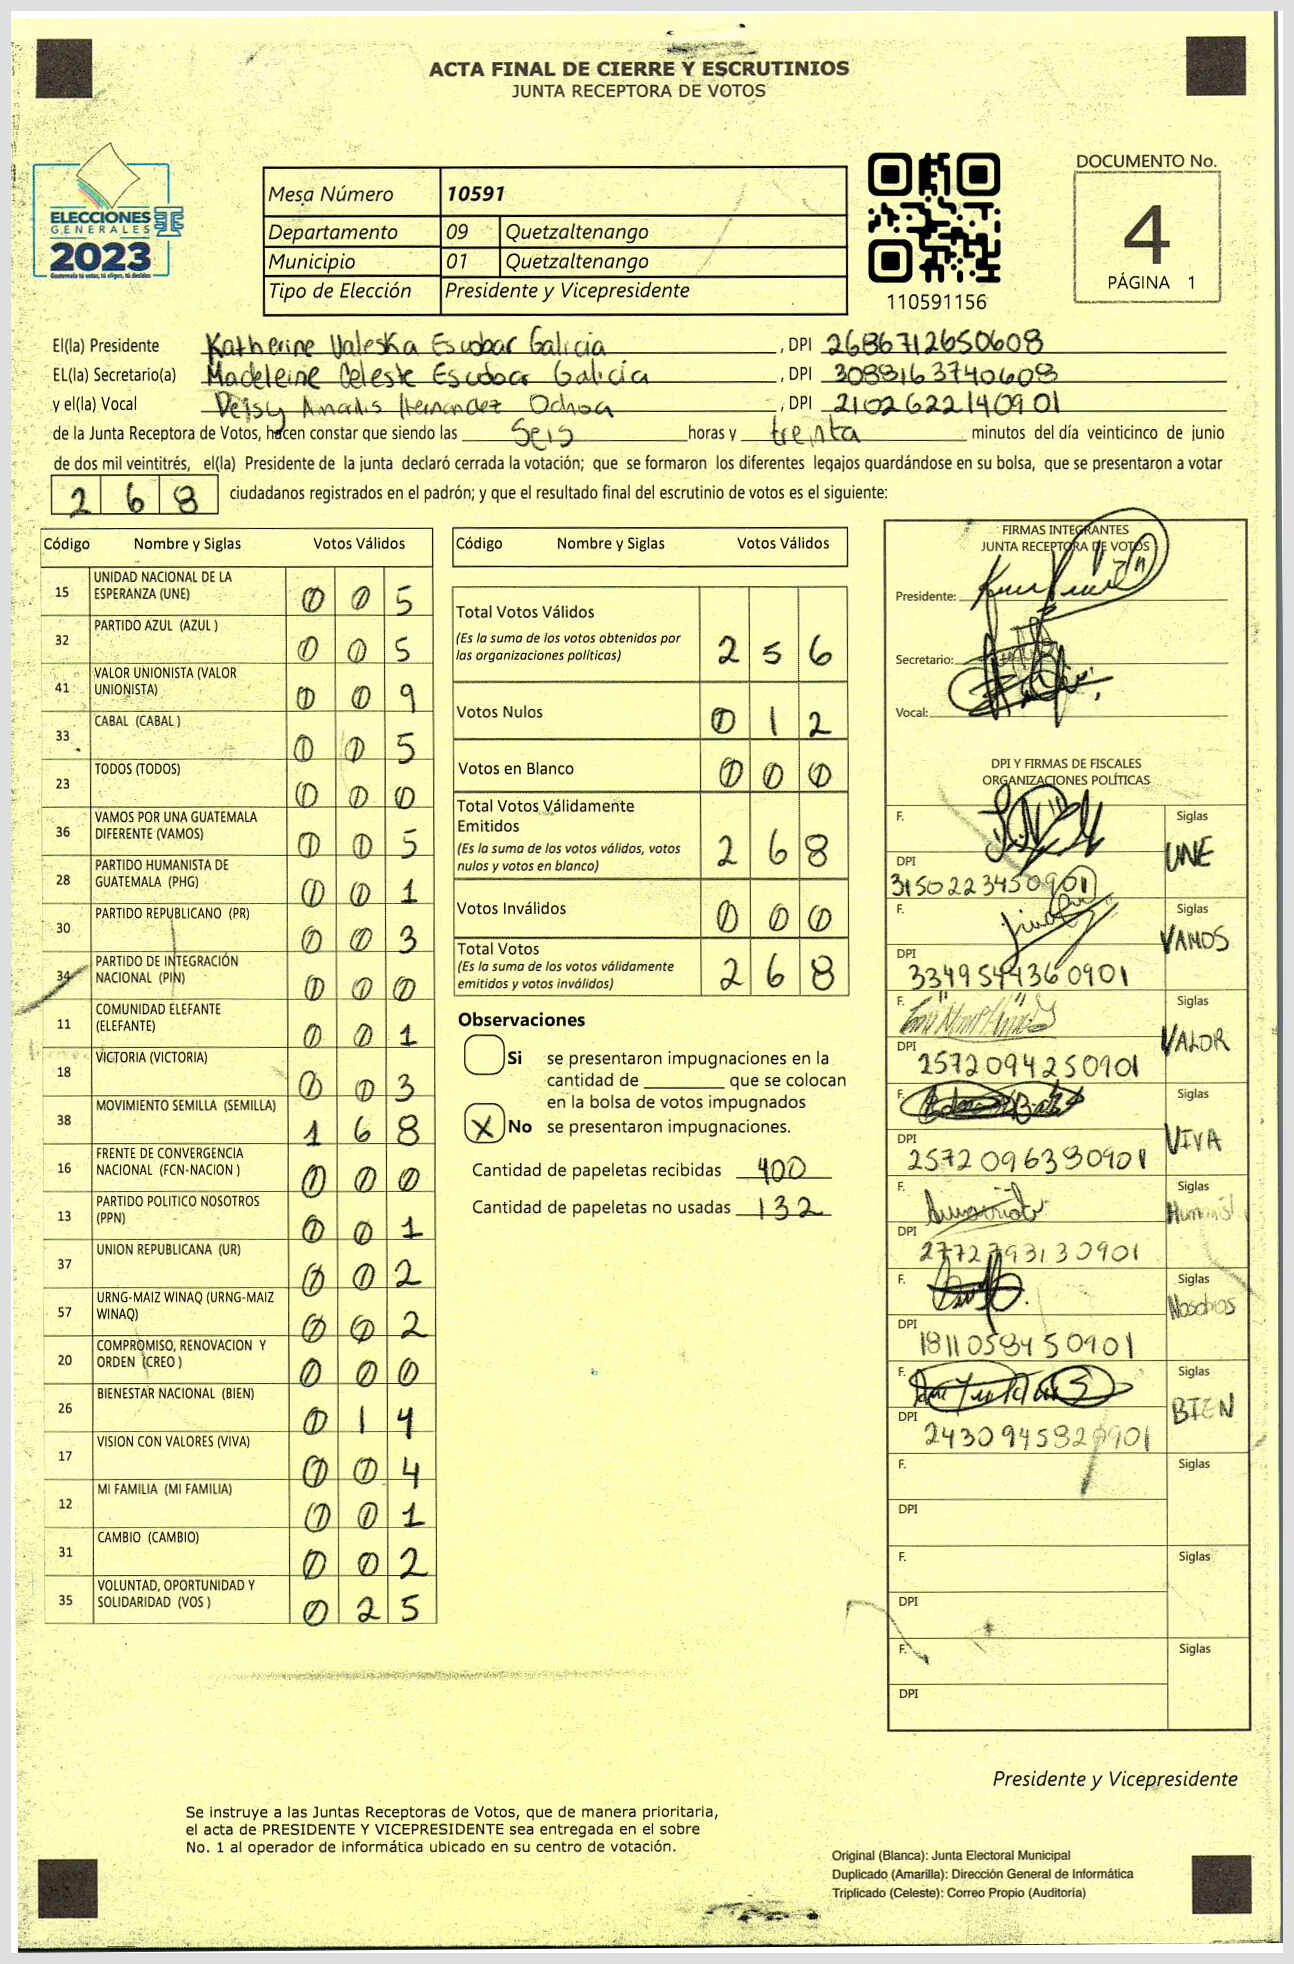 ACTA FINAL DE CIERRE Y ESCRUTINIOS
JUNTA RECEPTORA DE VOTOS
ELECCIONES
GENERALES
2023
Guatemala tú votas, tú eliges, tú decides
Mesa Número 10591
Departamento 09 Quetzaltenango
Municipio 01 Quetzaltenango
Tipo de Elección Presidente y Vicepresidente
110591156
DOCUMENTO No.
4
PÁGINA 1
El(la) Presidente Katherine Valeska Escobar Galicia , DPI 2686712650608
EL(la) Secretario(a) Madeleine Celeste Escobar Galicia , DPI 3088163740608
y el(la) Vocal Deisy Hernandez Ochoa , DPI 2102622140901
de la Junta Receptora de Votos, hacen constar que siendo las Seis horas y treinta minutos del día veinticinco de junio
de dos mil veintitrés, el(la) Presidente de la junta declaró cerrada la votación; que se formaron los diferentes legajos quardándose en su bolsa, que se presentaron a votar
268 ciudadanos registrados en el padrón; y que el resultado final del escrutinio de votos es el siguiente:
Código Nombre y Siglas Votos Válidos
15 UNIDAD NACIONAL DE LA ESPERANZA (UNE) 0 0 5
32 PARTIDO AZUL (AZUL ) 0 0 5
41 VALOR UNIONISTA (VALOR UNIONISTA) 0 0 9
33 CABAL (CABAL ) 0 0 5
23 TODOS (TODOS) 0 0 0
36 VAMOS POR UNA GUATEMALA DIFERENTE (VAMOS) 0 0 5
28 PARTIDO HUMANISTA DE GUATEMALA (PHG) 0 0 1
30 PARTIDO REPUBLICANO (PR) 0 0 3
34 PARTIDO DE INTEGRACIÓN NACIONAL (PIN) 0 0 0
11 COMUNIDAD ELEFANTE (ELEFANTE) 0 0 1
18 VICTORIA (VICTORIA) 0 0 3
38 MOVIMIENTO SEMILLA (SEMILLA) 1 6 8
16 FRENTE DE CONVERGENCIA NACIONAL (FCN-NACION ) 0 0 0
13 PARTIDO POLITICO NOSOTROS (PPN) 0 0 1
37 UNION REPUBLICANA (UR) 0 0 2
57 URNG-MAIZ WINAQ (URNG-MAIZ WINAQ) 0 0 2
20 COMPROMISO, RENOVACION Y ORDEN (CREO ) 0 0 0
26 BIENESTAR NACIONAL (BIEN) 0 1 4
17 VISION CON VALORES (VIVA) 0 0 4
12 MI FAMILIA (MI FAMILIA) 0 0 1
31 CAMBIO (CAMBIO) 0 0 2
35 VOLUNTAD, OPORTUNIDAD Y SOLIDARIDAD (VOS ) 0 2 5
Código Nombre y Siglas Votos Válidos
Total Votos Válidos 2 5 6
(Es la suma de los votos obtenidos por
las organizaciones políticas)
Votos Nulos 0 1 2
Votos en Blanco 0 0 0
Total Votos Válidamente
Emitidos 2 6 8
(Es la suma de los votos válidos, votos
nulos y votos en blanco)
Votos Inválidos 0 0 0
Total Votos 2 6 8
(Es la suma de los votos válidamente
emitidos y votos inválidos)
Observaciones
Si se presentaron impugnaciones en la
cantidad de ________ que se colocan
en la bolsa de votos impugnados
X No se presentaron impugnaciones.
Cantidad de papeletas recibidas 400
Cantidad de papeletas no usadas 132
FIRMAS INTEGRANTES
JUNTA RECEPTORA DE VOTOS
Presidente:
Secretario:
Vocal:
DPI Y FIRMAS DE FISCALES
ORGANIZACIONES POLÍTICAS
F. Siglas
UNE
DPI
3150223450901
F. Siglas
VAMOS
DPI
3349544360901
F. Siglas
VALOR
DPI
2572094250901
F. Siglas
VIVA
DPI
2572096380901
F. Siglas
DPI
2772793130901
F. Siglas
Nosotros
DPI
1811058450901
F. Siglas
BIEN
DPI
2430945820901
F. Siglas
DPI
F. Siglas
DPI
F. Siglas
DPI
Presidente y Vicepresidente
Se instruye a las Juntas Receptoras de Votos, que de manera prioritaria,
el acta de PRESIDENTE Y VICEPRESIDENTE sea entregada en el sobre
No. 1 al operador de informática ubicado en su centro de votación.
Original (Blanca): Junta Electoral Municipal
Duplicado (Amarilla): Dirección General de Informática
Triplicado (Celeste): Correo Propio (Auditoría)